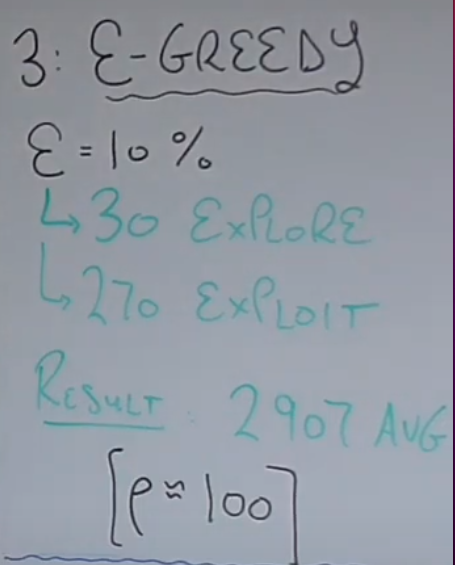 3: Ɛ-GREEDY
Ɛ = 10 %
↳ 30 ExPLORE
↳ 270 ExPLOIT
RESULT: 2907 AVG
[ρ ≈ 100]